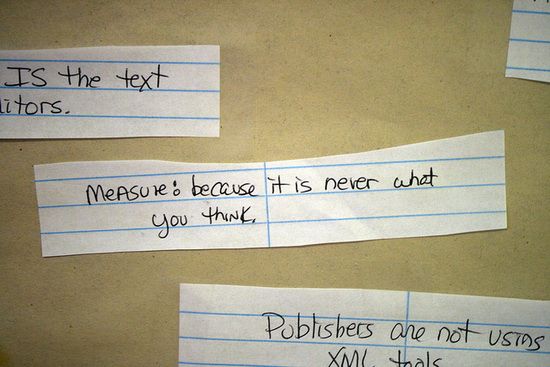 IS the text
itors.
MEASURE: because it is never what
you think.
Publishers are not using
XML tools